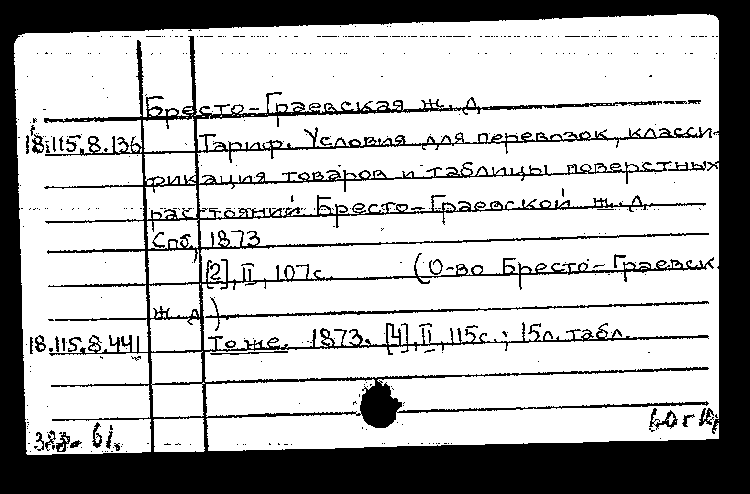 Бресто-Граевская ж. д.
18.115.8.136 Тариф. Условия для перевозок, класси-
фикация товаров и таблицы поверстных
расстояний Бресто-Граевской ж. д.
Спб, 1873
[2], II, 107с. (О-во Бресто-Граевск.
ж. д.)
18.115.8.441 То же. 1873. [4], II, 115с.; 15л. табл.
61.